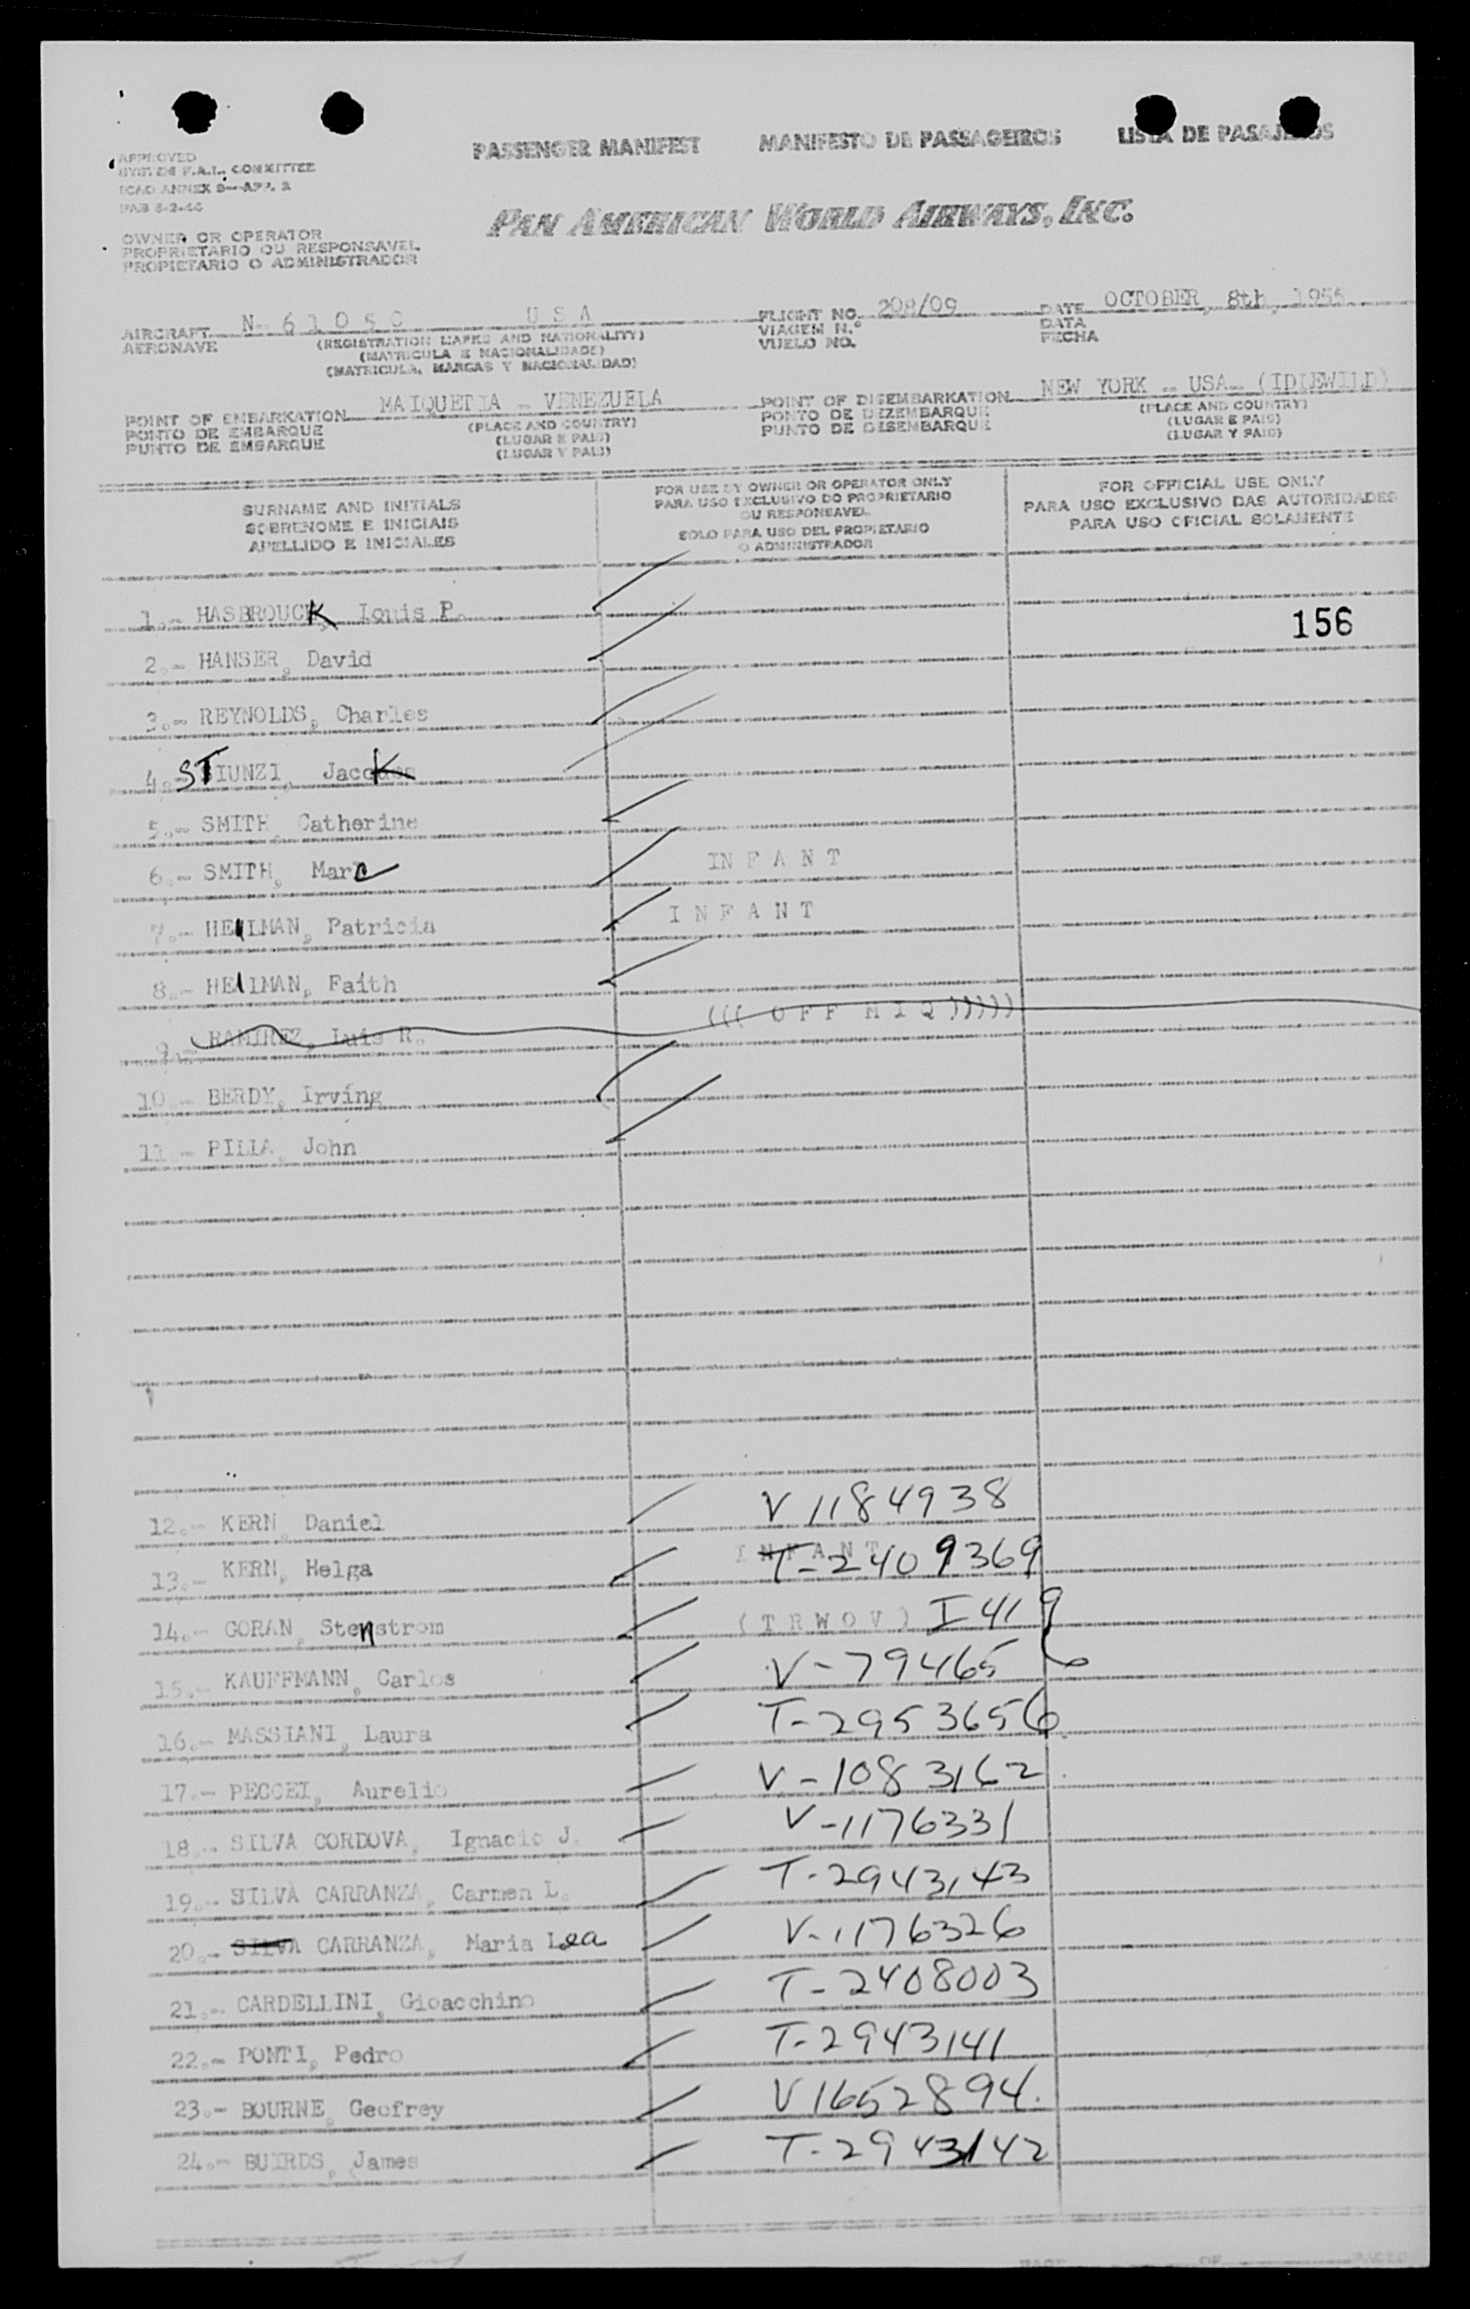 PASSENGER MANIFEST MANIFESTO DE PASSAGEIROS LISTA DE PASAJEROS
APPROVED
SYSTEM F.A.L. COMMITTEE
ICAO ANNEX 9-APP. 2
PAN AMERICAN WORLD AIRWAYS, INC.
OWNER OR OPERATOR
PROPRIETARIO OU RESPONSAVEL
PROPIETARIO O ADMINISTRADOR
AIRCRAFT N- 6 1 0 U S A FLIGHT NO. 208/09 DATE OCTOBER, 8th, 1955
AERONAVE (REGISTRATION MARKS AND NATIONALITY) VIAGEM N.° DATA
(MATRICULA E NACIONALIDADE) VUELO NO. FECHA
(MATRICULA, MARCAS Y NACIONALIDAD)
POINT OF EMBARKATION MAIQUETIA - VENEZUELA POINT OF DISEMBARKATION NEW YORK - USA- (IDLEWILD)
PONTO DE EMBARQUE (PLACE AND COUNTRY) PONTO DE DEZEMBARQUE (PLACE AND COUNTRY)
PUNTO DE EMBARQUE (LUGAR E PAIS) PUNTO DE DESEMBARQUE (LUGAR E PAIS)
(LUGAR Y PAIS) (LUGAR Y PAIS)
SURNAME AND INITIALS FOR USE BY OWNER OR OPERATOR ONLY FOR OFFICIAL USE ONLY
SOBRENOME E INICIAIS PARA USO EXCLUSIVO DO PROPRIETARIO PARA USO EXCLUSIVO DAS AUTORIDADES
APELLIDO E INICIALES OU RESPONSAVEL PARA USO OFICIAL SOLAMENTE
SOLO PARA USO DEL PROPIETARIO
O ADMINISTRADOR
1.- HASBROUCK, Louis P.
156
2.- HANSER, David
3.- REYNOLDS, Charles
4.- STIUNZI, Jack
5.- SMITH, Catherine
6.- SMITH, Marc I N F A N T
7.- HEILMAN, Patricia I N F A N T
8.- HEILMAN, Faith
9.- RAMIREZ, Luis R. ((( O F F M I Q )))))
10.- BERDY, Irving
11.- PILLA, John
12.- KERN, Daniel V 1184938
13.- KERN, Helga I N F A N T T-2409369
14.- GORAN, Stenstrom ( T R W O V ) I 419
15.- KAUFFMANN, Carlos V-79465
16.- MASSIANI, Laura T-2953656
17.- PECCEI, Aurelio V-1083162
18.- SILVA CORDOVA, Ignacio J. V-1176331
19.- SILVA CARRANZA, Carmen L. T-2943143
20.- SILVA CARRANZA, Maria Lea V-1176326
21.- CARDELLINI, Gioacchino T-2408003
22.- PONTI, Pedro T-2943141
23.- BOURNE, Geofrey V 1652894.
24.- BUIRDS, James T-2943142